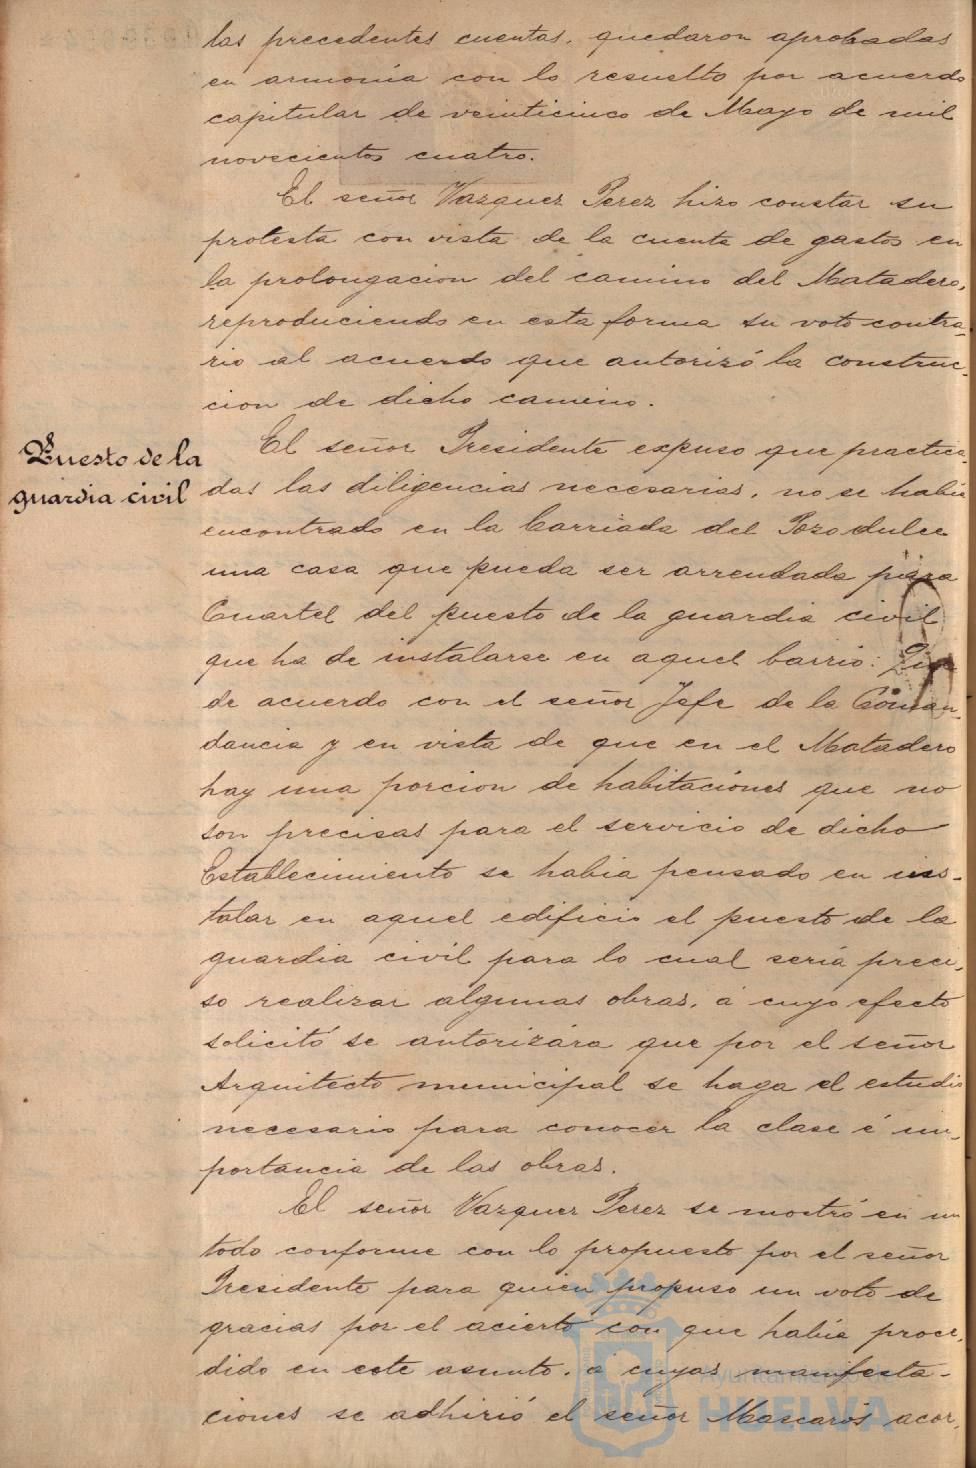 las precedentes cuentas, quedaron aprobadas
en armonia con lo resuelto por acuerdo
capitular de veinticinco de Mayo de mil
novecientos cuatro.
El señor Vazquez Perez hizo constar su
protesta con vista de la cuenta de gastos en
la prolongacion del camino del Matadero,
reproduciendo en esta forma su voto contra-
rio al acuerdo que autorizó la construc-
cion de dicho camino.
Puesto de la
guardia civil
El señor Presidente expuso que practica-
das las diligencias necesarias, no se habia
encontrado en la barriada del Pozo dulce
una casa que pueda ser arrendada para
Cuartel del puesto de la guardia civil
que ha de instalarse en aquel barrio: Que
de acuerdo con el señor Jefe de la Coman-
dancia y en vista de que en el Matadero
hay una porcion de habitaciones que no
son precisas para el servicio de dicho
Establecimiento se habia pensado en ins-
talar en aquel edificio el puesto de la
guardia civil para lo cual seria preci-
so realizar algunas obras, á cuyo efecto
solicitó se autorizára que por el señor
Arquitecto municipal se haga el estudio
necesario para conocer la clase é im-
portancia de las obras.
El señor Vazquez Perez se mostró en un
todo conforme con lo propuesto por el señor
Presidente para quien propuso un voto de
gracias por el acierto con que habia proce-
dido en este asunto, a cuyas manifesta-
ciones se adhirió el señor Mascarós acor-
Ayuntamiento de
HUELVA